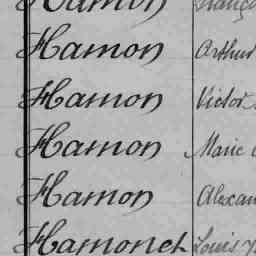 Hamon
Hamon Arthur
Hamon Victor
Hamon Marie
Hamon Alexan
Hamonet Louis